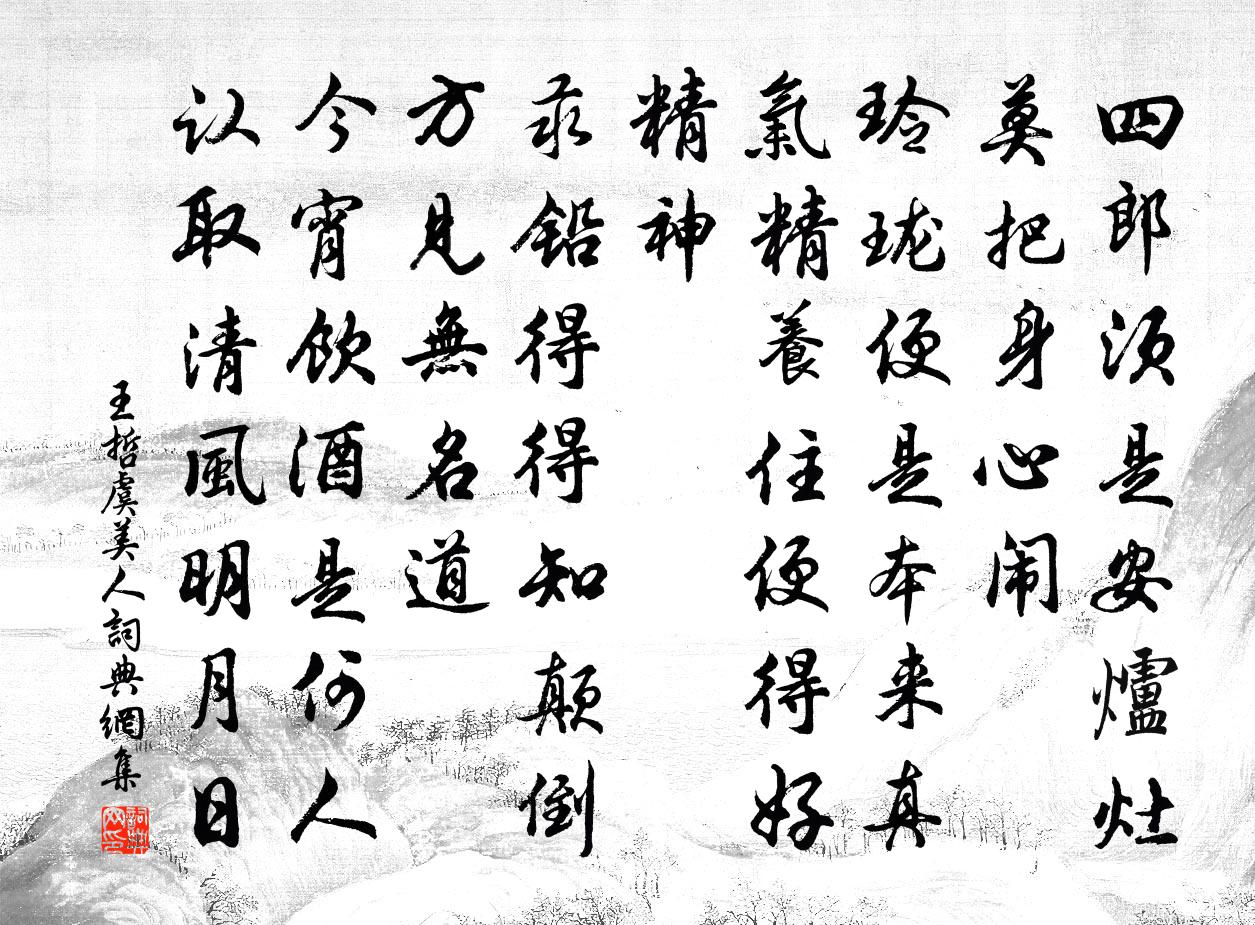 四郎须是安爐灶
莫把身心闹
玲珑便是本来真
氣精養住便得好
精神
汞铅得得知颠倒
方見無名道
今宵飲酒是何人
认取清風明月日
王哲虞美人詞典網集